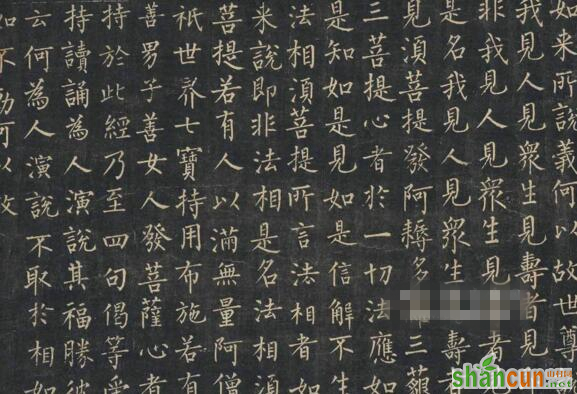 如来所說義何以故世尊
我見人見衆生見壽者見
非我見人見衆生見者見
是名我見人見衆生壽者
見湏菩提發阿耨多三藐
三菩提心者於一切法應如
是知如是見如是信解不生
法相湏菩提所言法相者如
来說即非法相是名法相湏
菩提若有人以滿無量阿僧
祇世界七寶持用布施若有
善男子善女人發菩薩心者
持於此經乃至四句偈等受
持讀誦為人演說其福勝彼
云何為人演說不取於相如
如不動何以故
shancun
.net